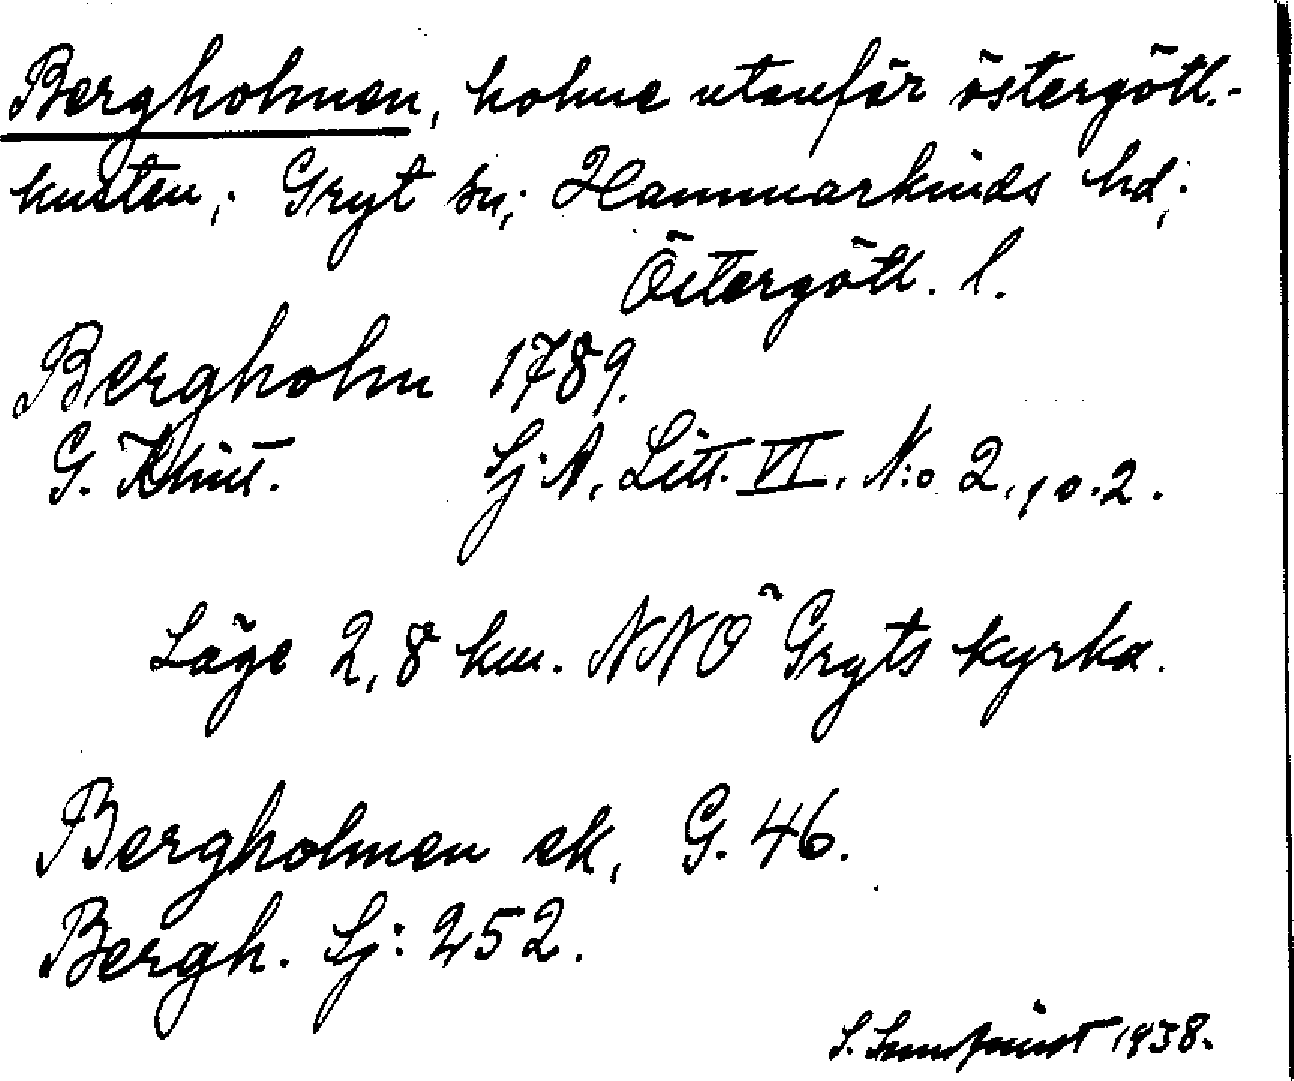 Bergholmen, holme utanför östergötl.-
kusten; Gryt sn; Hammarkinds hd;
Östergötl. l.
Bergholm 1789.
G. Klint. Sj: A. Litt. VI. N:o 2, p. 2.
Läge 2,8 km. NNÖ Gryts kyrka.
Bergholmen ek, G. 46.
Bergh. Sj: 252.
S. 1938.